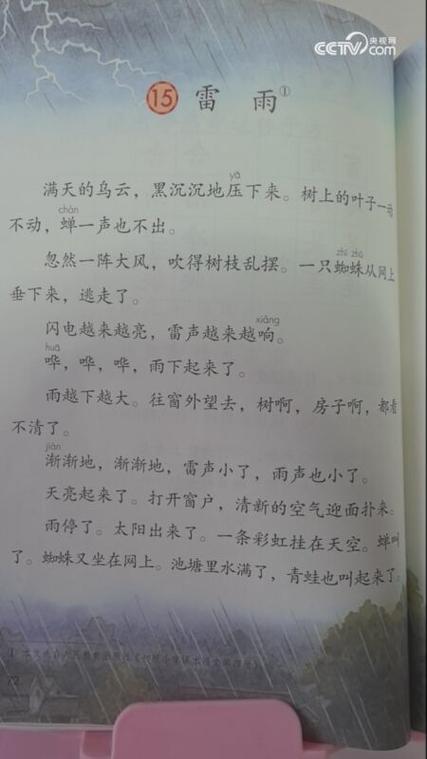 CCTV 央视网
com
15 雷 雨①
yā
满天的乌云，黑沉沉地压下来。树上的叶子一动
chán
不动，蝉一声也不出。
忽然一阵大风，吹得树枝乱摆。一只蜘蛛从网上
zhī zhū
垂下来，逃走了。
xiǎng
闪电越来越亮，雷声越来越响。
huā
哗，哗，哗，雨下起来了。
雨越下越大。往窗外望去，树啊，房子啊，都看
不清了。
jiàn
渐渐地，渐渐地，雷声小了，雨声也小了。
天亮起来了。打开窗户，清新的空气迎面扑来。
雨停了。太阳出来了。一条彩虹挂在天空。蝉叫
了。蜘蛛又坐在网上。池塘里水满了，青蛙也叫起来了。
72